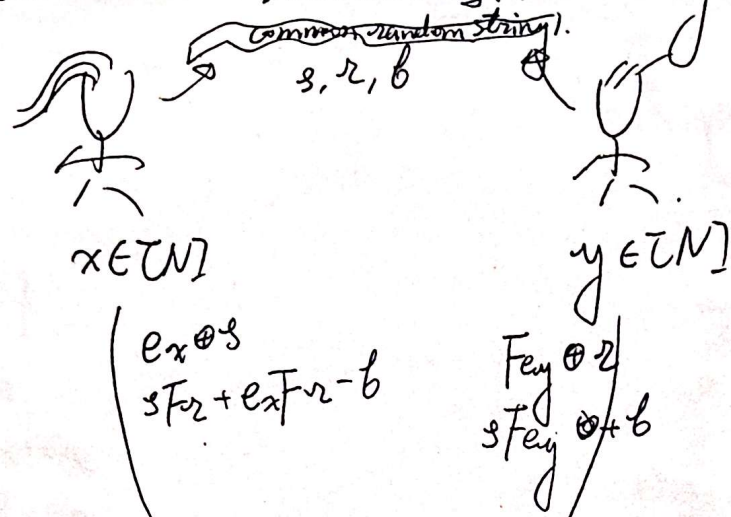 common random string.
s, r, b
x ∈ [N]
y ∈ [N]
e_x ⊕ s
sFr + e_xFr - b
Fe_y ⊕ r
sFe_y + b